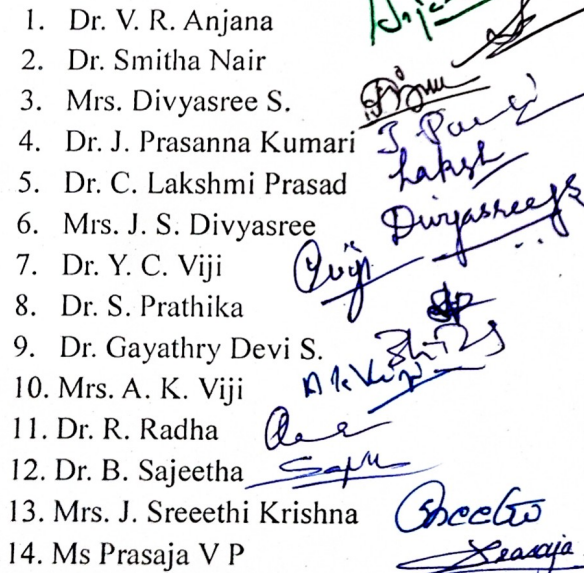 1. Dr. V. R. Anjana
2. Dr. Smitha Nair
3. Mrs. Divyasree S.
4. Dr. J. Prasanna Kumari
5. Dr. C. Lakshmi Prasad Laksh
6. Mrs. J. S. Divyasree Divyasree JS
7. Dr. Y. C. Viji
8. Dr. S. Prathika
9. Dr. Gayathry Devi S.
10. Mrs. A. K. Viji
11. Dr. R. Radha
12. Dr. B. Sajeetha
13. Mrs. J. Sreeethi Krishna
14. Ms Prasaja V P